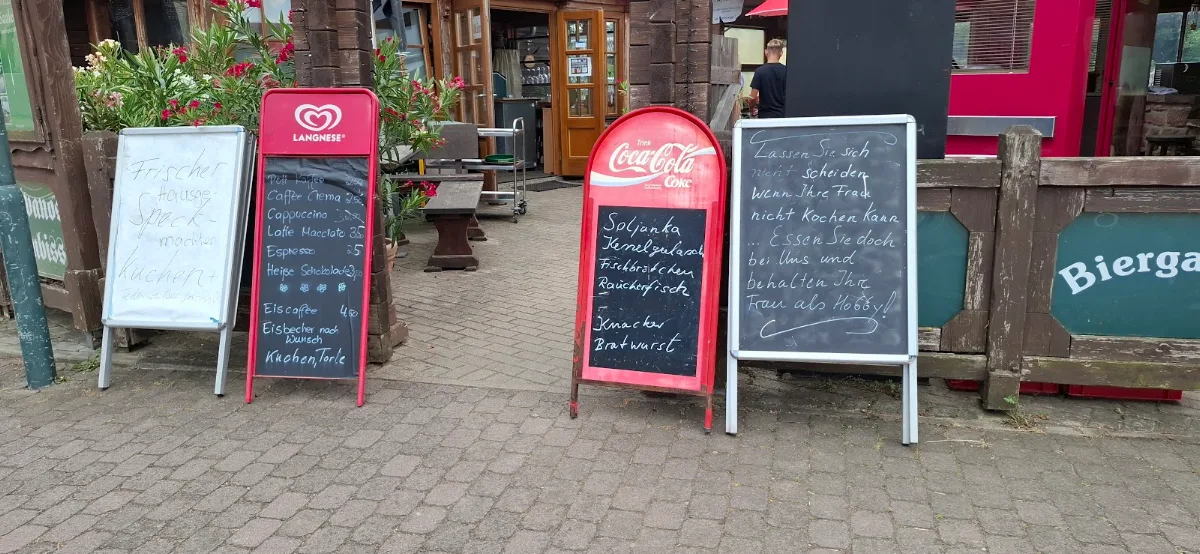 Frischer
Hausge-
Speck-
machter
Kuchen +
LANGNESE
Pott Kaffee
Caffee Crema
Cappuccino
Latte Macciato 3,50
Espresso
Heiße Schokolade
Eiscaffee 4,50
Eisbecher nach
Wunsch
Kuchen, Torte
Trink
Coca-Cola
Coke
Soljanka
Kesselgulasch
Fischbrötchen
Räucherfisch
Knacker
Bratwurst
Lassen Sie sich
nicht scheiden
wenn Ihre Frau
nicht Kochen kann
... Essen Sie doch
bei Uns und
behalten Ihre
Frau als Hobby!
Bierga